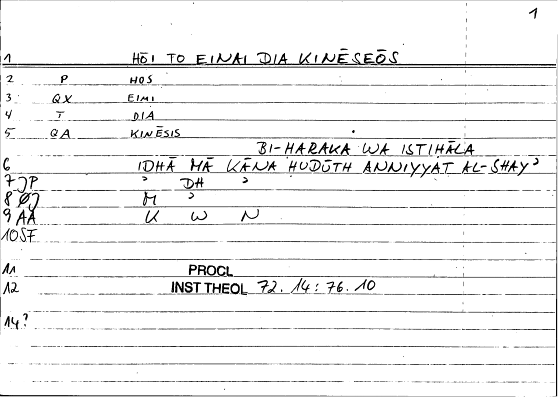 1
1 HŌI TO EINAI DIA KINĒSEŌS
2 P HOS
3 QX EIMI
4 T DIA
5 QA KINĒSIS
BI-HARAKA WA ISTIHĀLA
6 IDHĀ MĀ KĀNA HUDŪTH ANNIYYAT AL-SHAYʾ
7 JP ʾ DH ʾ
8 ØJ M ʾ
9 AA K W N
10 SF
11 PROCL
12 INST THEOL 72.14:76.10
14?